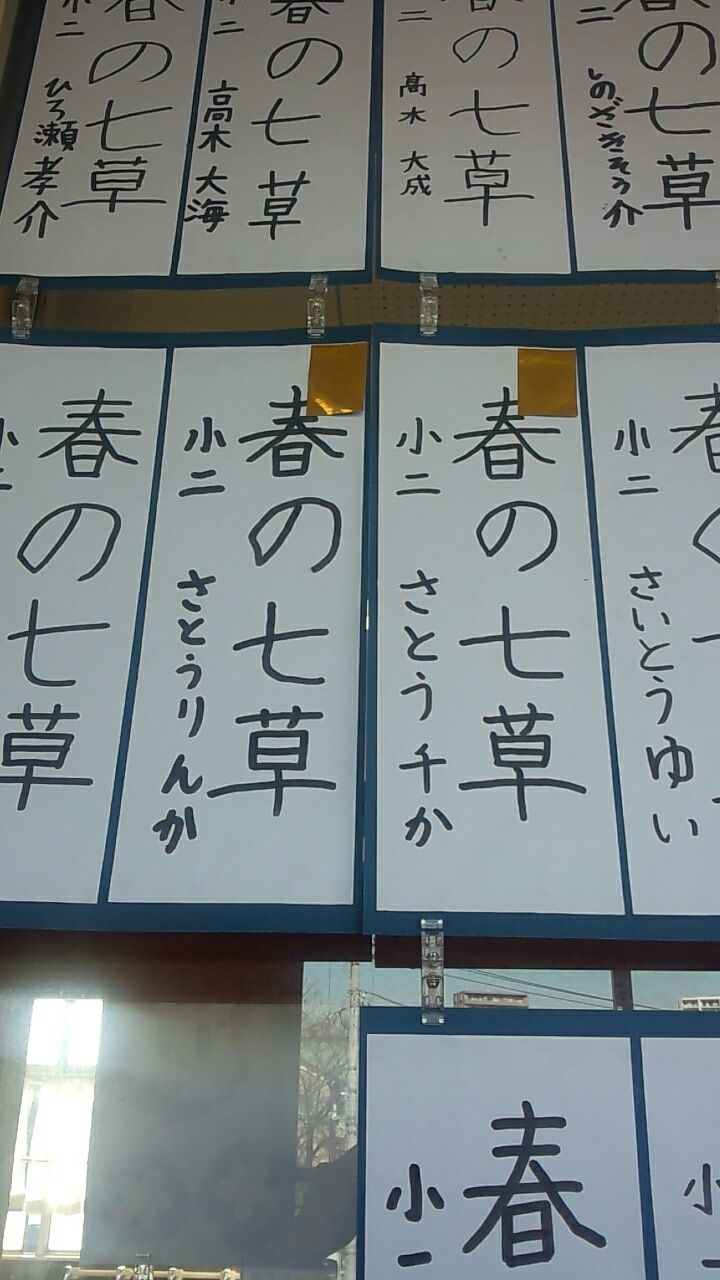 春の七草
小二
しのざきそう介
春の七草
小二
髙木 大成
春の七草
小二
髙木 大海
春の七草
小二
ひろ瀬 孝介
小二
さいとうゆい
春の七草
小二
さとう千か
春の七草
小二
さとうりんか
春の七草
小二
春
小一
小